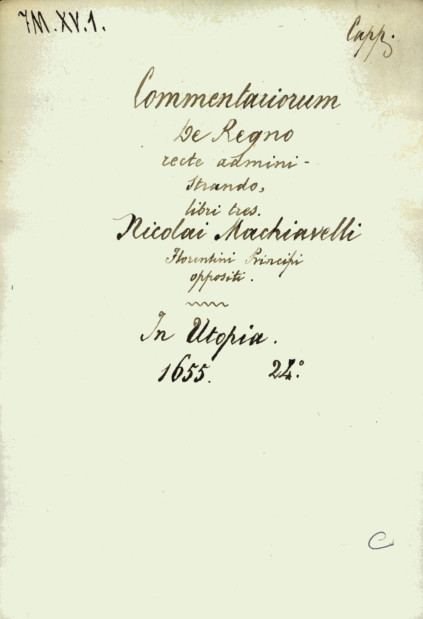 7M.XV.1.
Capp.
Commentariorum
De Regno
recte admini-
strando,
libri tres.
Nicolai Machiavelli
Florentini Principi
oppositi.
In Utopia.
1655. 24.°
C